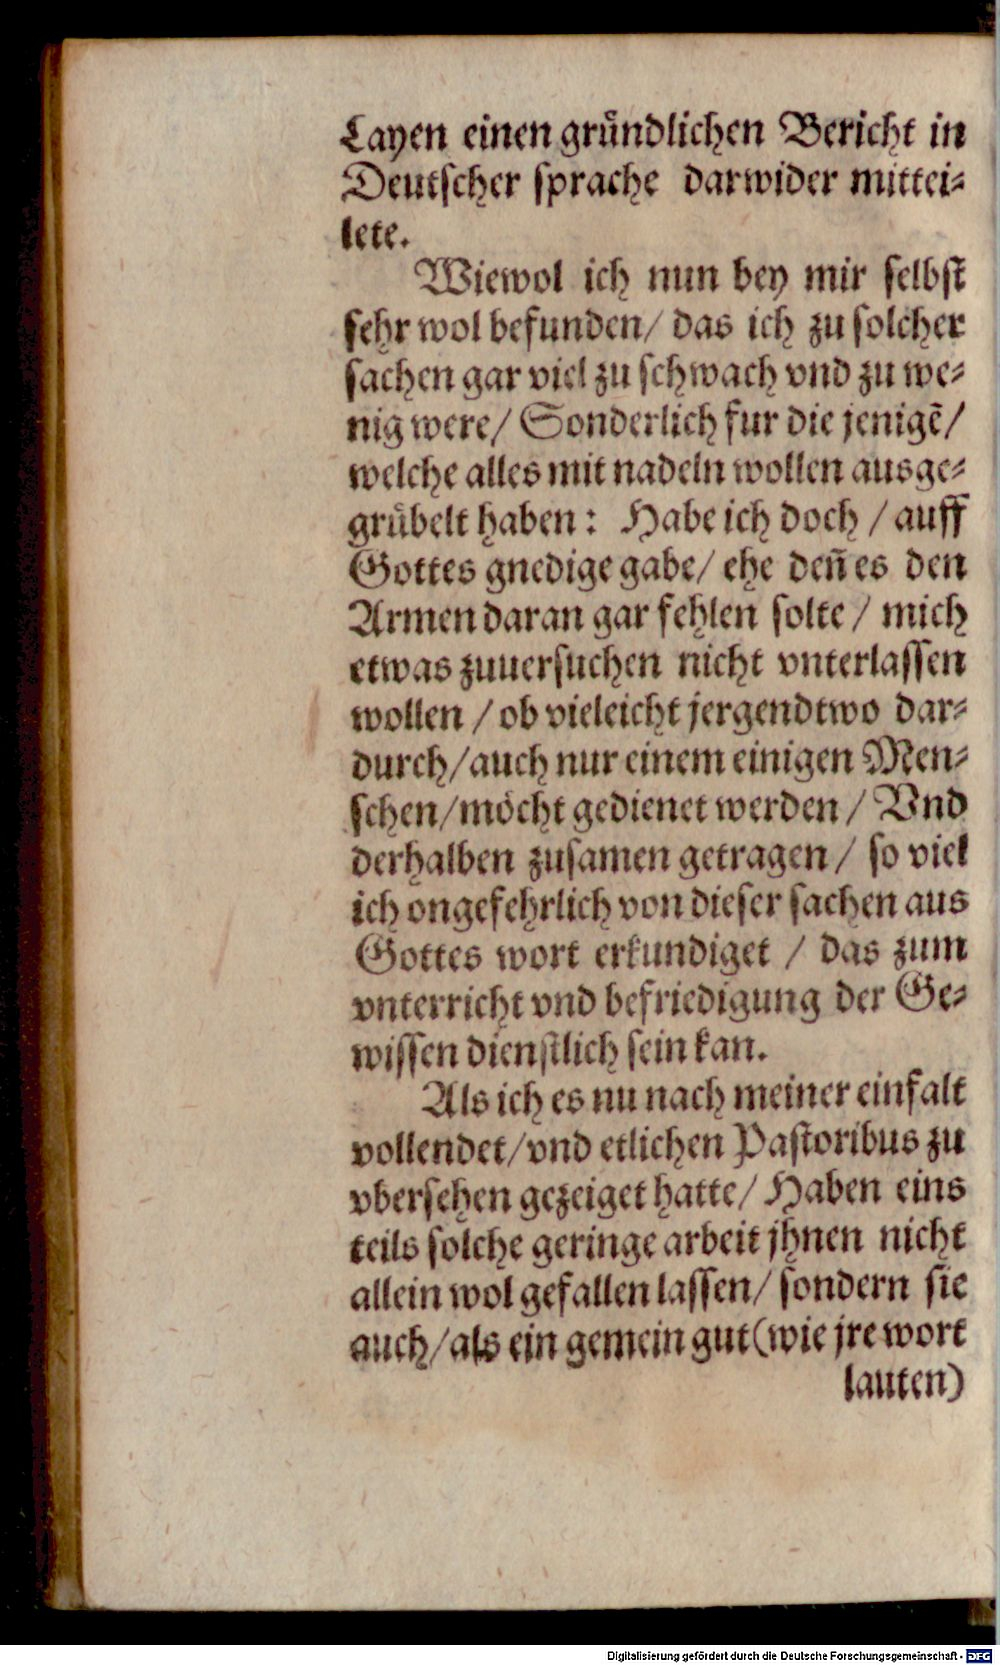 Layen einen gruͤndlichen Bericht in
Deutscher sprache darwider mittei⸗
lete.
Wiewol ich nun bey mir selbst
sehr wol befunden/ das ich zu solcher
sachen gar viel zu schwach vnd zu we⸗
nig were/ Sonderlich fur die jenigē/
welche alles mit nadeln wollen ausge⸗
gruͤbelt haben: Habe ich doch / auff
Gottes gnedige gabe/ ehe den̄ es den
Armen daran gar fehlen solte / mich
etwas zuuersuchen nicht vnterlassen
wollen / ob vieleicht jergendtwo dar⸗
durch/ auch nur einem einigen Men⸗
schen/ moͤcht gedienet werden / Vnd
derhalben zusamen getragen / so viel
ich ongefehrlich von dieser sachen aus
Gottes wort erkundiget / das zum
vnterricht vnd befriedigung der Ge⸗
wissen dienstlich sein kan.
Als ich es nu nach meiner einfalt
vollendet/ vnd etlichen Pastoribus zu
vbersehen gezeiget hatte/ Haben eins
teils solche geringe arbeit jhnen nicht
allein wol gefallen lassen/ sondern sie
auch/ als ein gemein gut (wie jre wort
lauten)
Digitalisierung gefördert durch die Deutsche Forschungsgemeinschaft - DFG